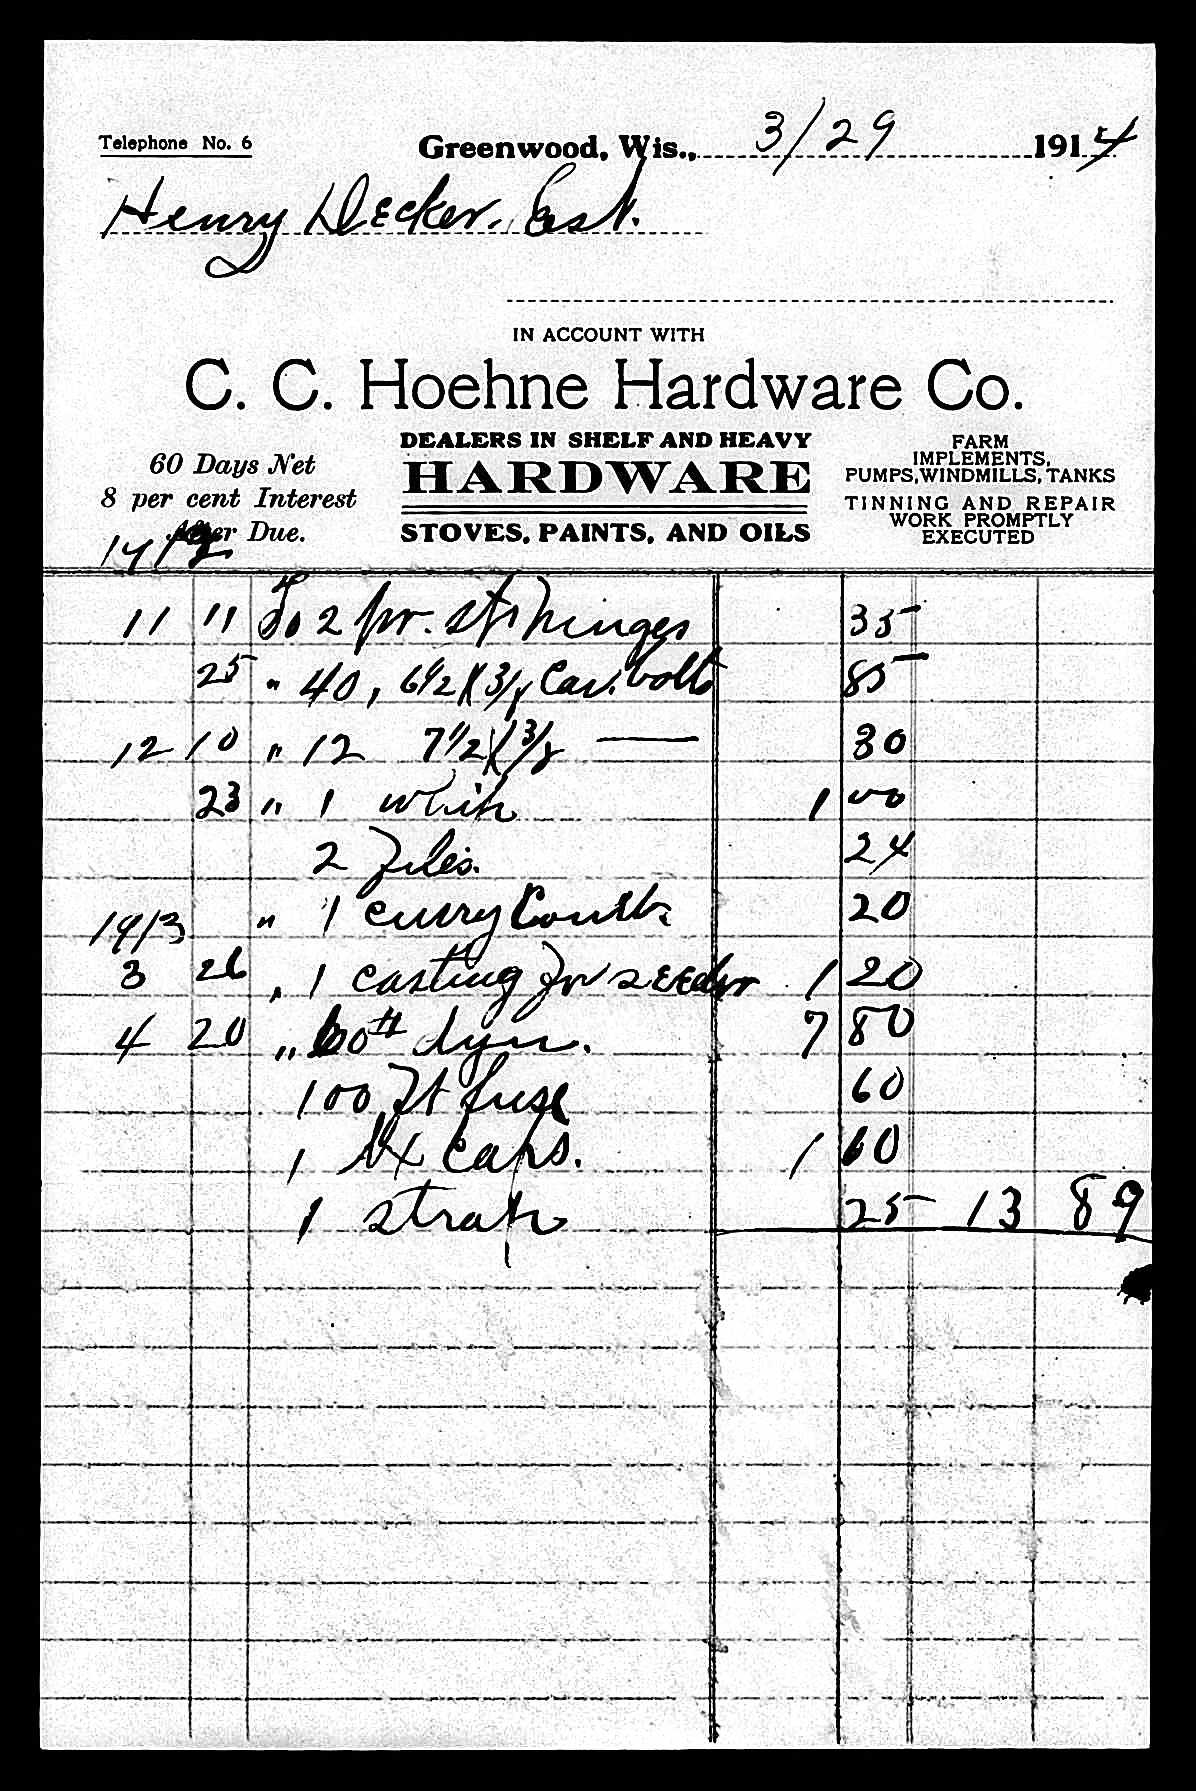 Telephone No. 6 Greenwood, Wis., 3/29 1914
Henry Decker. Est.
IN ACCOUNT WITH
C. C. Hoehne Hardware Co.
60 Days Net
8 per cent Interest
After Due.
DEALERS IN SHELF AND HEAVY
HARDWARE
STOVES, PAINTS, AND OILS
FARM
IMPLEMENTS,
PUMPS, WINDMILLS, TANKS
TINNING AND REPAIR
WORK PROMPTLY
EXECUTED
11 11 To 2 pr. st hinges 35
25 " 40, 6 1/2 X 3/8 Car. bolts 85
12 10 " 12 7 1/2 X 3/8 — 30
23 " 1 whip 1 00
2 Files. 24
1913 " 1 curry Comb 20
3 26 " 1 casting for seeder 1 20
4 20 " 60# dyn. 7 80
100 Ft fuse 60
1 bx caps. 1 10
1 strap 25 13 89